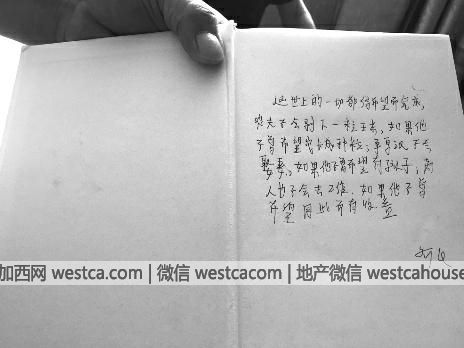 这世上的一切都借希望而完成,
农夫不会剥下一粒玉米,如果他
不曾希望它长成种粒;单身汉不会
娶妻,如果他不曾希望有孩子;商
人也不会去工作,如果他不曾
希望因此而有收益
加西网 westca.com | 微信 westcacom | 地产微信 westcahouse